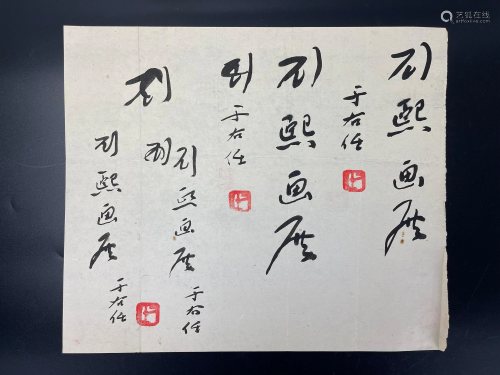 刘熙画展
于右任
刘熙画展
刘
于右任
刘
刘
刘熙画展
于右任
刘熙画展
于右任
艺狐在线
artfoxlive.com